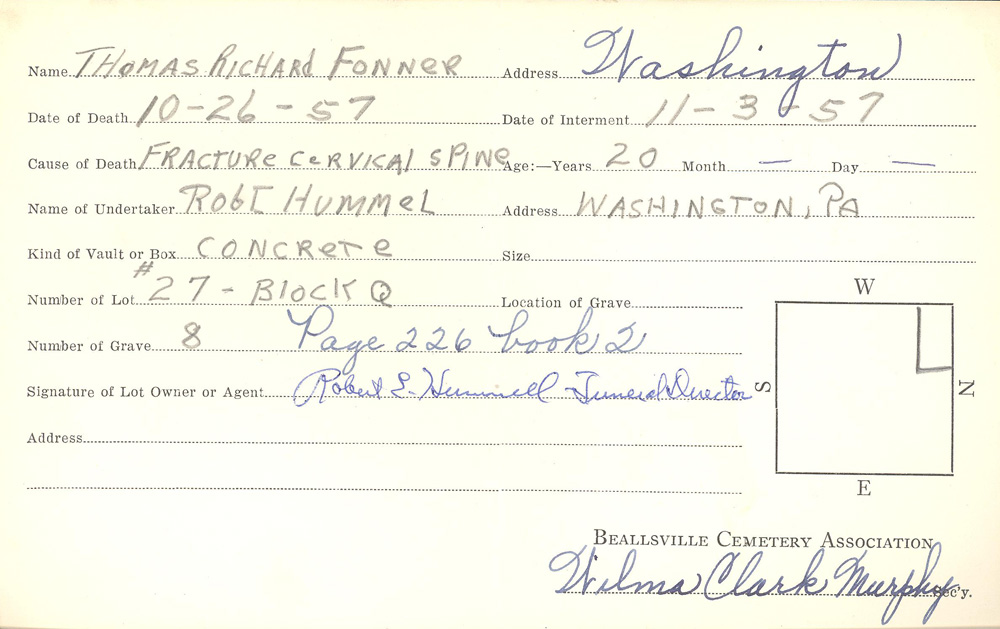 Name THOMAS RICHARD FONNER Address Washington
Date of Death 10-26-57 Date of Interment 11-3-57
Cause of Death FRACTURE CERVICAL SPINE Age:—Years 20 Month — Day —
Name of Undertaker ROBT HUMMEL Address WASHINGTON, PA
Kind of Vault or Box CONCRETE Size
Number of Lot #27 - BLOCK Q Location of Grave
Number of Grave 8 Page 226 book 2
Signature of Lot Owner or Agent Robert L. Hummell Funeral Director
Address
W
S
N
E
BEALLSVILLE CEMETERY ASSOCIATION
Wilma Clark Murphy Sec'y.